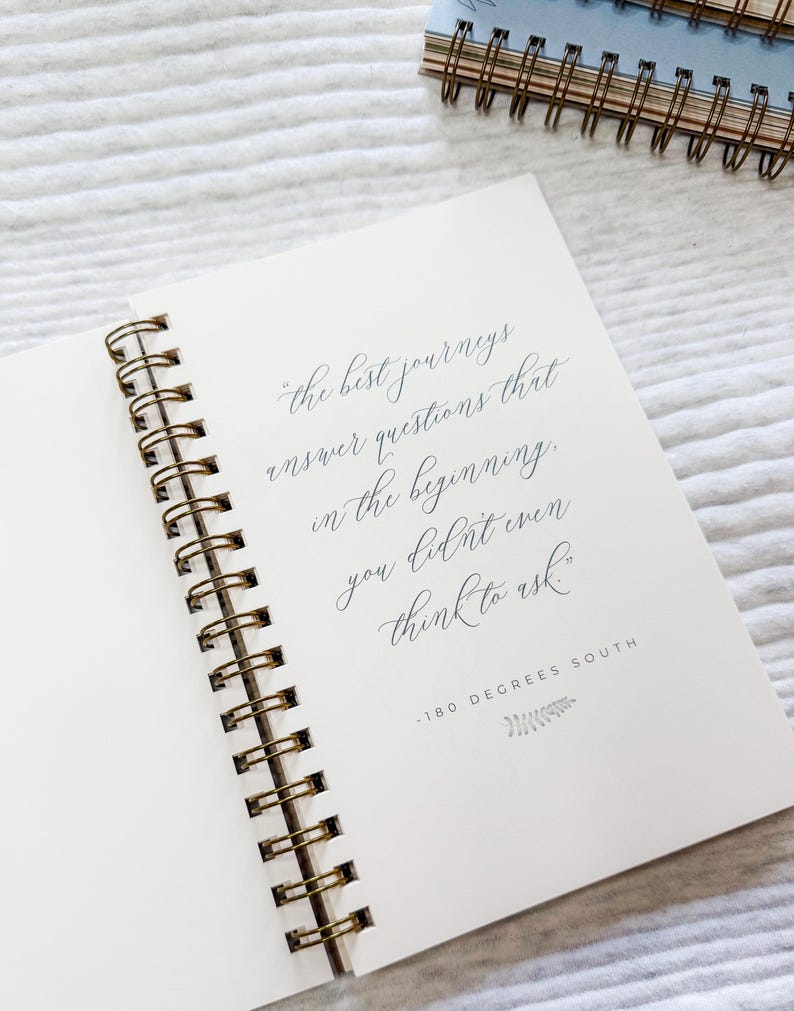 “the best journeys
answer questions that
in the beginning,
you didn’t even
think to ask.”
-180 DEGREES SOUTH